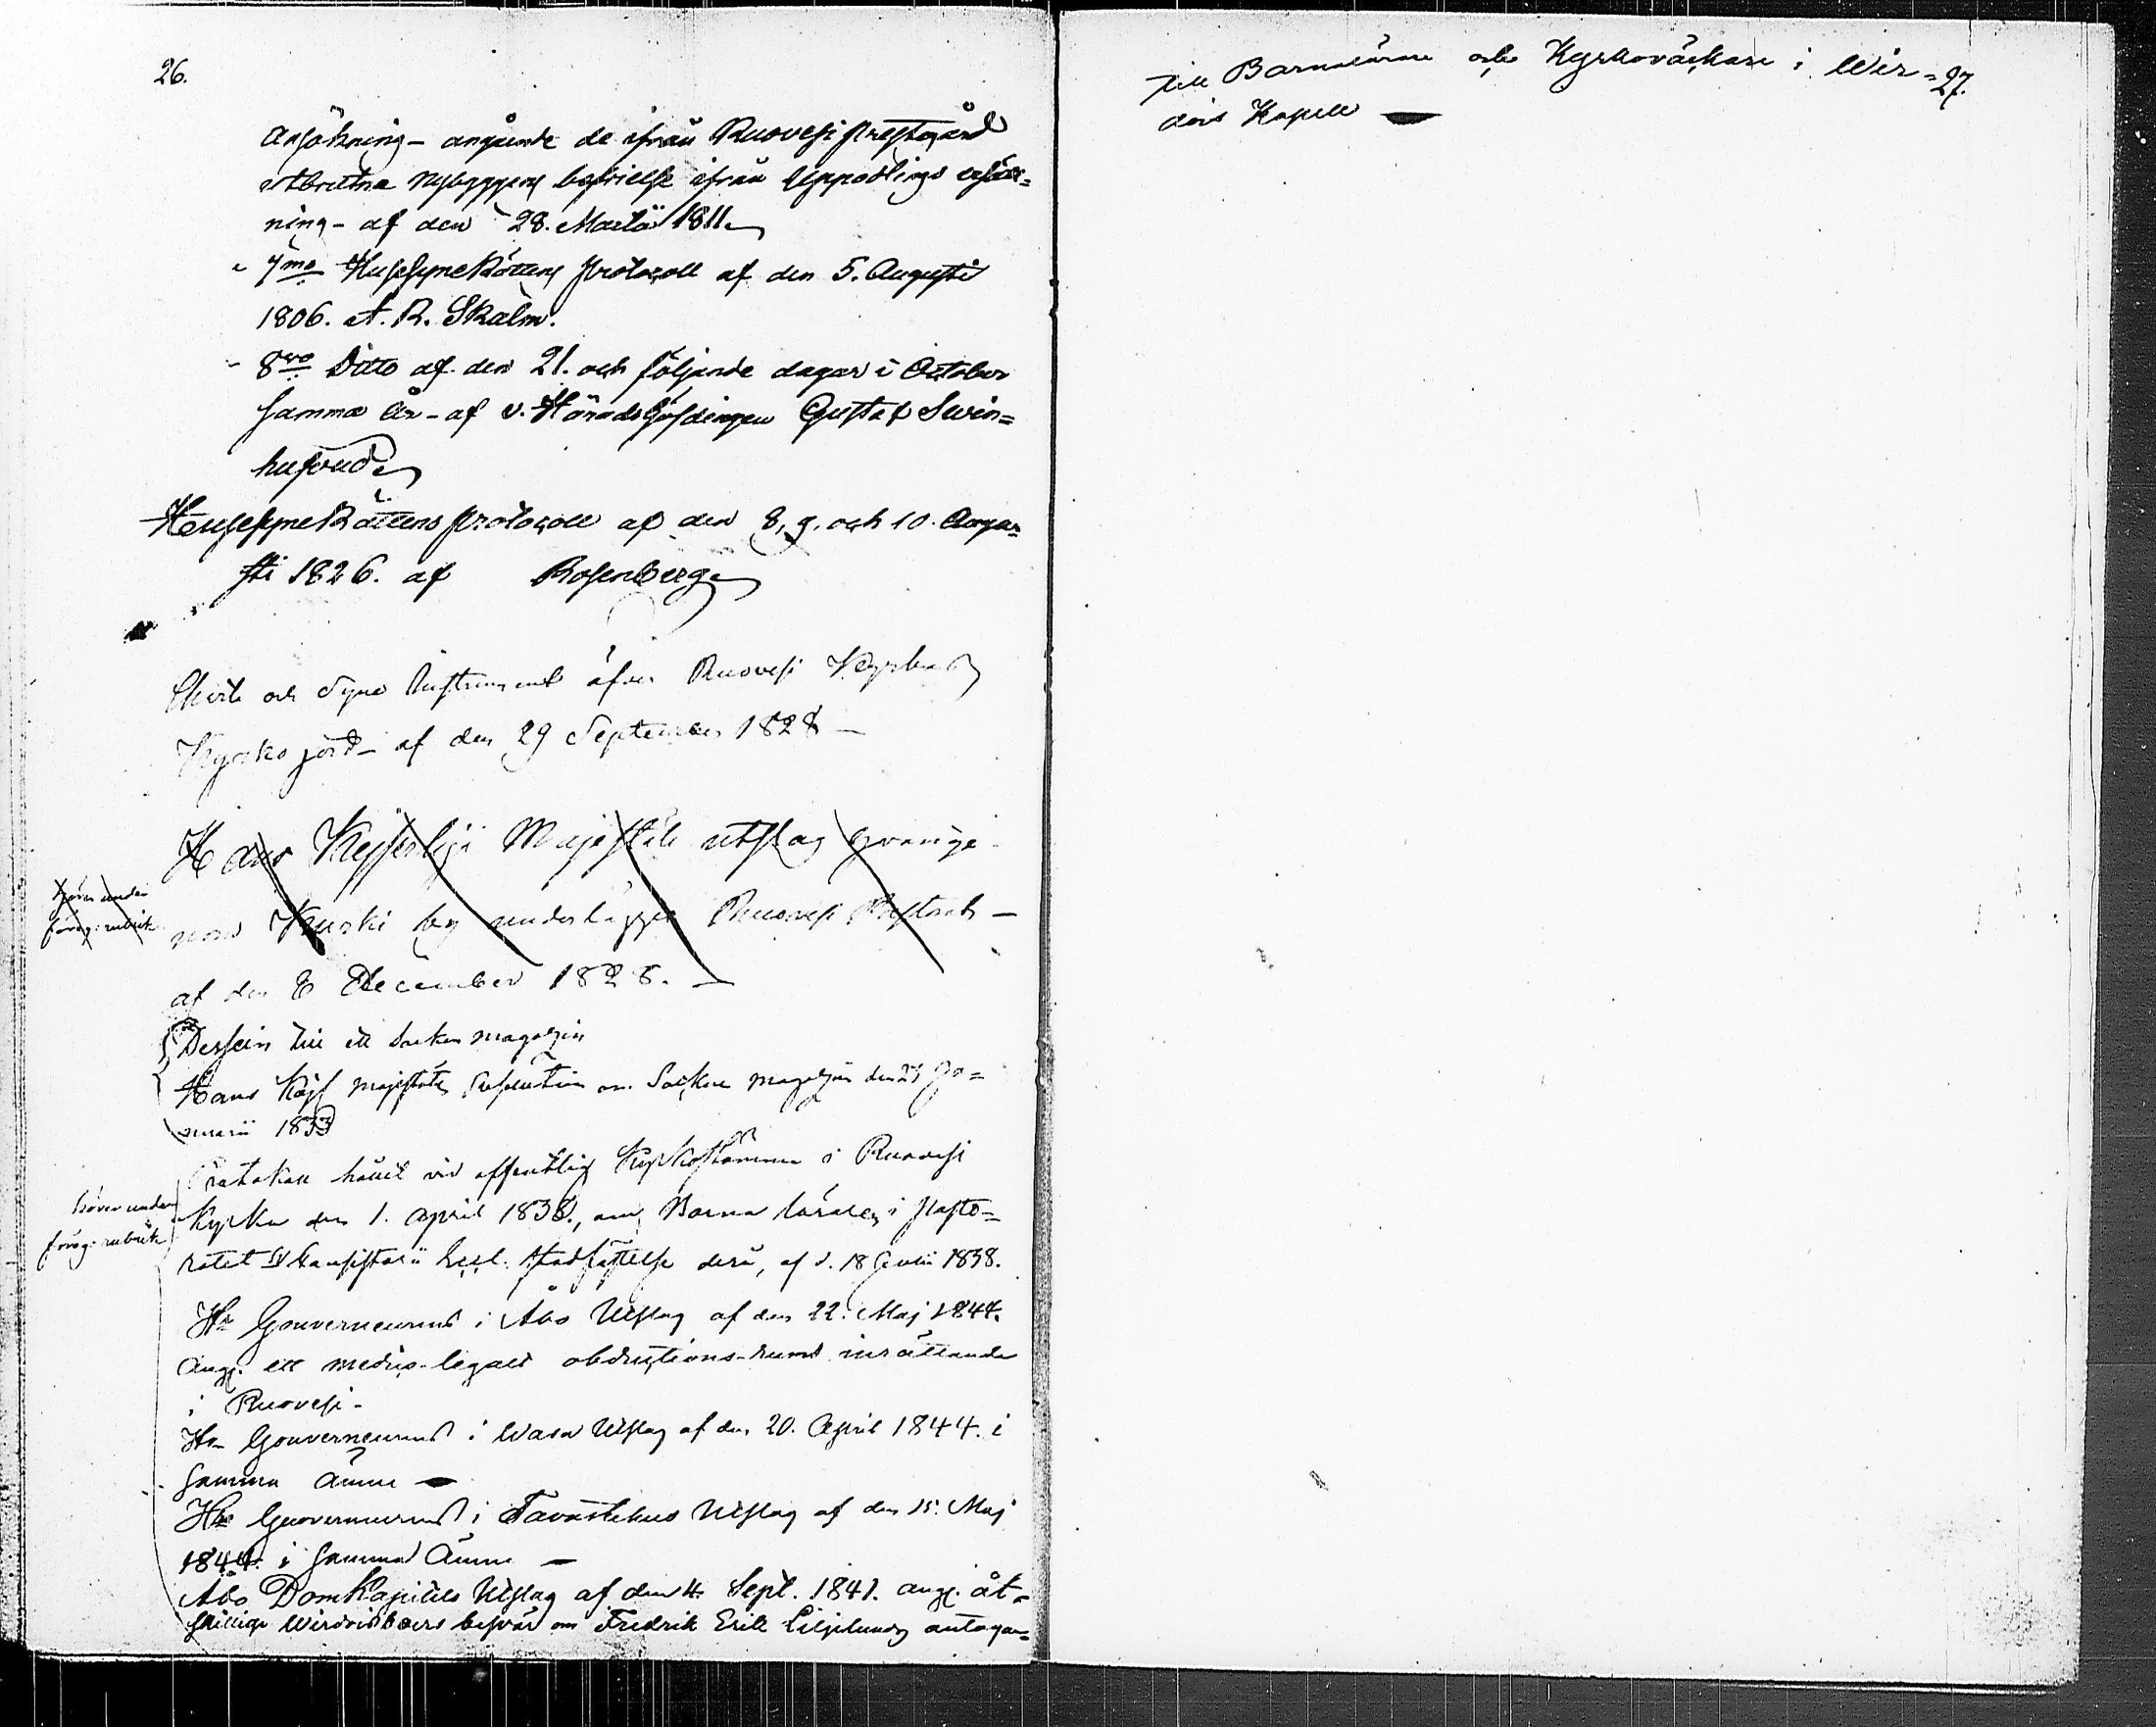 26.
Ansökning - angående de ifrån Ruovesi prestegård
utbrutne Nybyggens befrielse ifrån Uppodlings
ning - af den 28. Martii 1811.
" 7mo HusesyneRättens protocoll af den 5. Augusti
1806. A. R. Skalm.
" 8vo Ditto af den 21. och följande dagar i October
samma år - af v. Häradshöfdingen Gustaf Swin=
hufvud
HusesyneRättens protocoll af den 8, 9. och 10. Augu=
sti 1826. af Rosenberg
Charta och Syne Instrument öfver Ruovesi Kyrka
Kyrko jord - af den 29 September 1828 —
Hans Kejserliga Majestäts utslag
Kurki by underlägges Ruovesi Pastorat —
af den 8 December 1828. —
hörer under
föreg: rubrik
Dessein till ett Socken magazin
Hans Kejs Majestäts Resolution om Socken magazin den 29 Ja=
nuarii 1833
Protokoll hållit vid offentlig Kyrkostämma i Ruovesi
Kyrka den 1. April 1838., om Barna lärares i Pasto=
ratet & Consistorii Eccl. stadfästelse derå, af d. 18 Julii 1838.
hörer under
föreg: rubrik
Hr Gouverneurens i Åbo Utslag af den 22. Maj 1844.
ang. ett medico-legalt obductions-rums inrättande
i Ruovesi -
Hr Gouverneurens i Wasa Utslag af den 20. April 1844. i
samma ämne —
Hr Gouverneurens i Tavastehus Utslag af den 15. Maj
1844. i samma ämne —
Åbo DomKapitels Utslag af den 4. Sept. 1841. ang. åt=
skillige Wirdoisboers besvär om Fredrik Erik Liljelunds antagan=
27.
till Barnalärare och Kyrkoväktare i Wir=
dois Kapell —